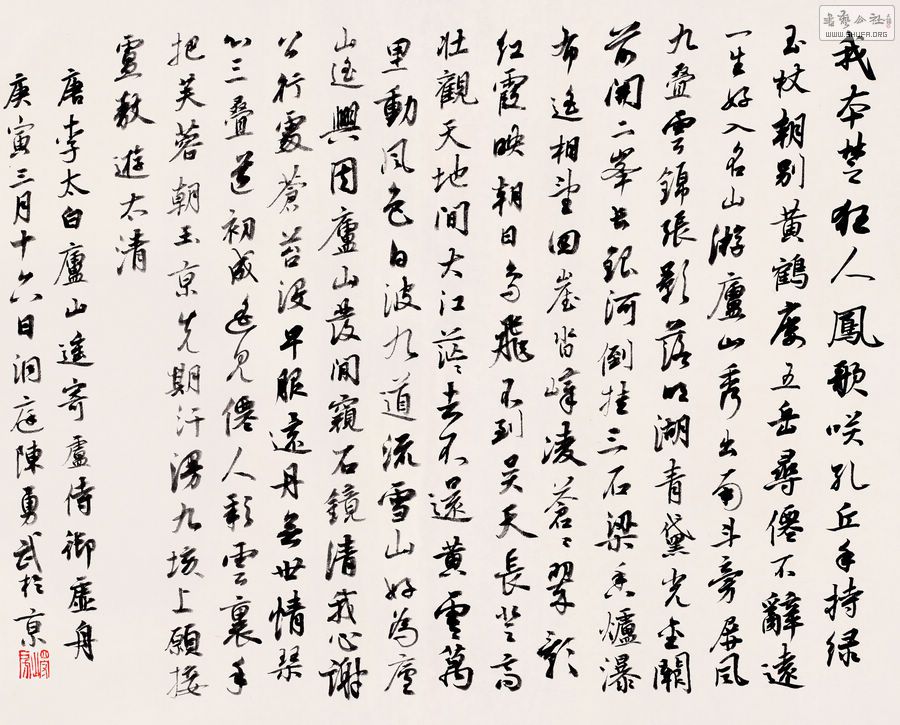 我本楚狂人鳳歌咲孔丘手持緑
玉杖朝别黄鶴廔五岳尋僊不辭遠
一生好入名山游廬山秀出南斗旁屏風
九叠雲錦張影落明湖青黛光金闕
前開二峯長銀河倒挂三石梁香爐瀑
布遥相望回崖沓嶂凌蒼〻翠影
红霞映朝日鸟飛不到吴天長登高
壮觀天地間大江茫〻去不還黄雲萬
里動風色白波九道流雪山好為廬
山遥興因廬山發閒窺石鏡清我心謝
公行處蒼苔没早服還丹無世情琴
心三叠道初成遥見僊人彩雲裏手
把芙蓉朝玉京先期汗漫九垓上願接
盧敖遊太清
唐李太白廬山遥寄盧侍御虚舟
庚寅三月十六日洞庭陳勇武於京
書藝公社
WWW.SHUFA.ORG